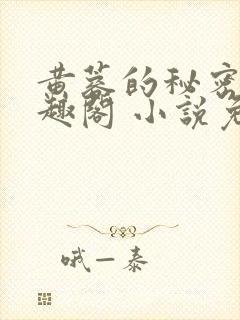 黄蓉的秘密
趣阁 小説免
哦一泰